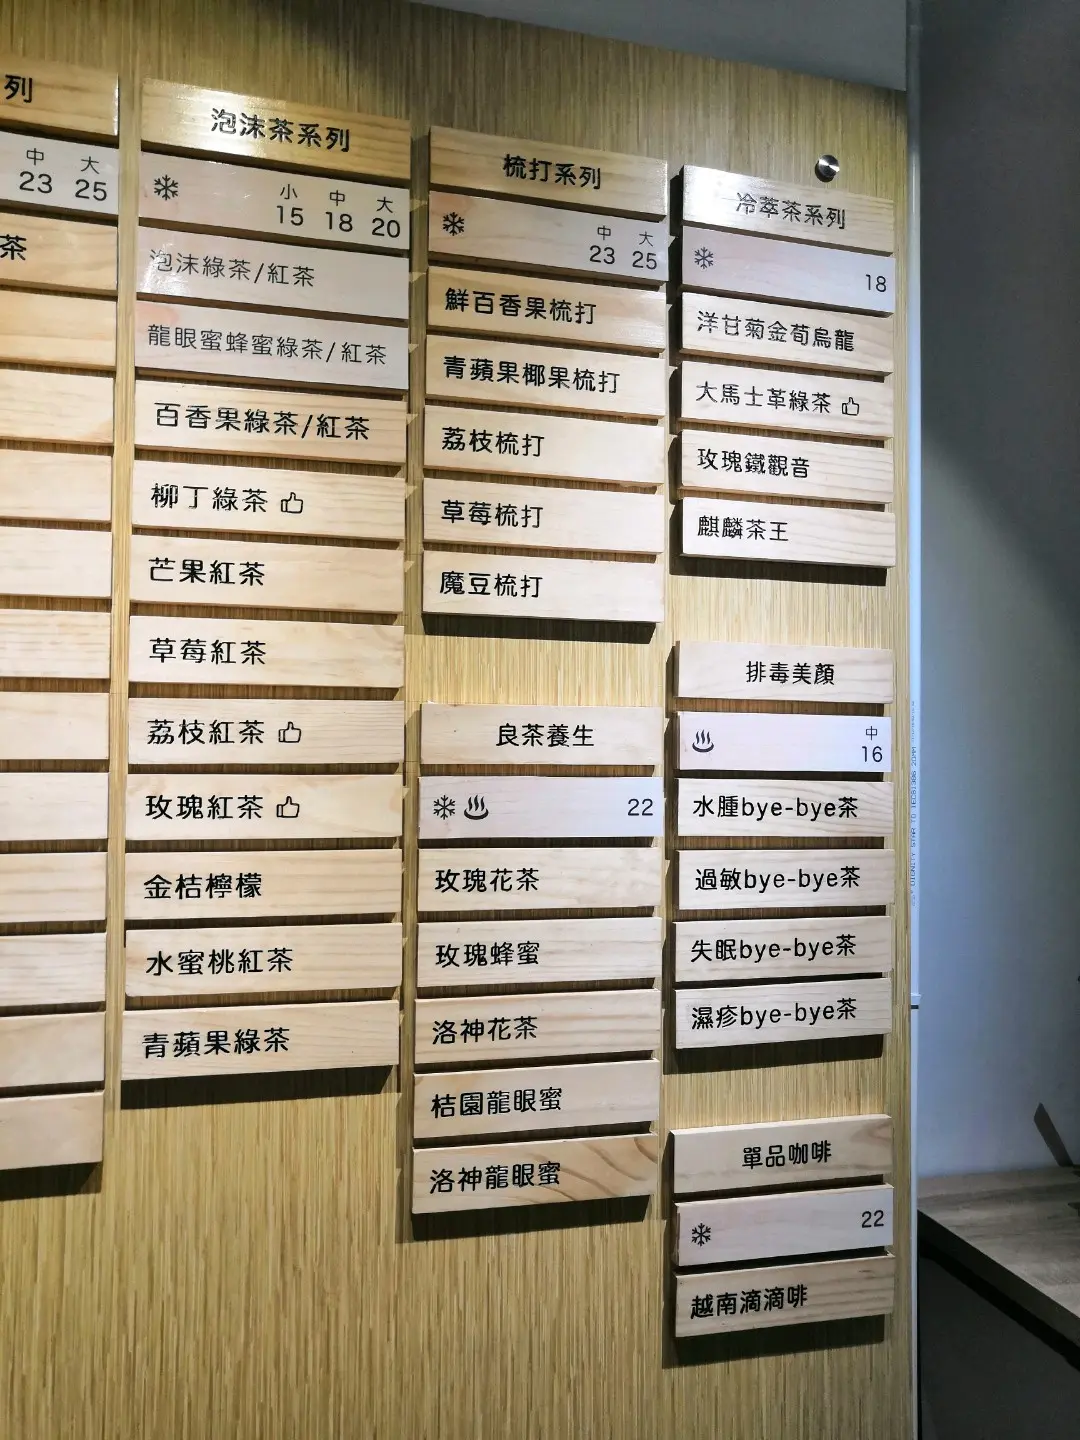 列
中 大
23 25
茶
泡沫茶系列
小 中 大
15 18 20
泡沫綠茶/紅茶
龍眼蜜蜂蜜綠茶/紅茶
百香果綠茶/紅茶
柳丁綠茶
芒果紅茶
草莓紅茶
荔枝紅茶
玫瑰紅茶
金桔檸檬
水蜜桃紅茶
青蘋果綠茶
梳打系列
中 大
23 25
鮮百香果梳打
青蘋果椰果梳打
荔枝梳打
草莓梳打
魔豆梳打
良茶養生
22
玫瑰花茶
玫瑰蜂蜜
洛神花茶
桔園龍眼蜜
洛神龍眼蜜
冷萃茶系列
18
洋甘菊金萄烏龍
大馬士革綠茶
玫瑰鐵觀音
麒麟茶王
排毒美顏
中
16
水腫bye-bye茶
過敏bye-bye茶
失眠bye-bye茶
濕疹bye-bye茶
單品咖啡
22
越南滴滴啡